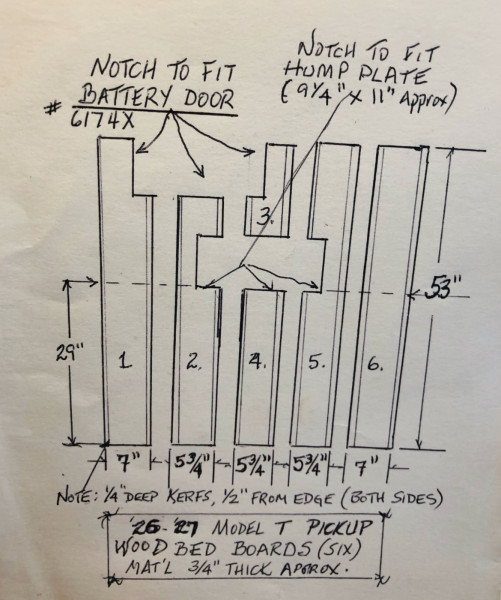 NOTCH TO FIT
BATTERY DOOR
# 6174X
NOTCH TO FIT
HUMP PLATE
(9 1/4" x 11" Approx)
3.
53"
29"
1.
2.
4.
5.
6.
7"
5 3/4"
5 3/4"
5 3/4"
7"
NOTE: 1/4" DEEP KERFS, 1/2" FROM EDGE (BOTH SIDES)
'26-'27 MODEL T PICKUP
WOOD BED BOARDS (SIX)
MAT'L 3/4" THICK APPROX.